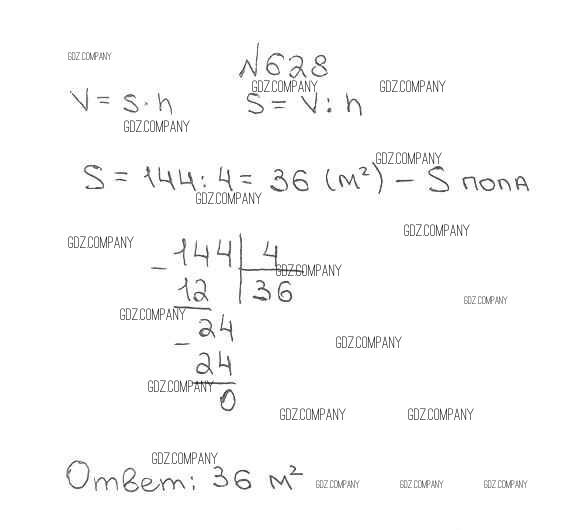 GDZ.COMPANY
№628
GDZ.COMPANY GDZ.COMPANY
V = S · h S = V : h
GDZ.COMPANY
GDZ.COMPANY
S = 144 : 4 = 36 (м²) – S пола
GDZ.COMPANY
GDZ.COMPANY
GDZ.COMPANY
– 144 | 4
GDZ.COMPANY
12 | 36
GDZ.COMPANY
GDZ.COMPANY
– 24
GDZ.COMPANY
24
GDZ.COMPANY
0
GDZ.COMPANY GDZ.COMPANY
GDZ.COMPANY
Ответ: 36 м²
GDZ.COMPANY GDZ.COMPANY GDZ.COMPANY